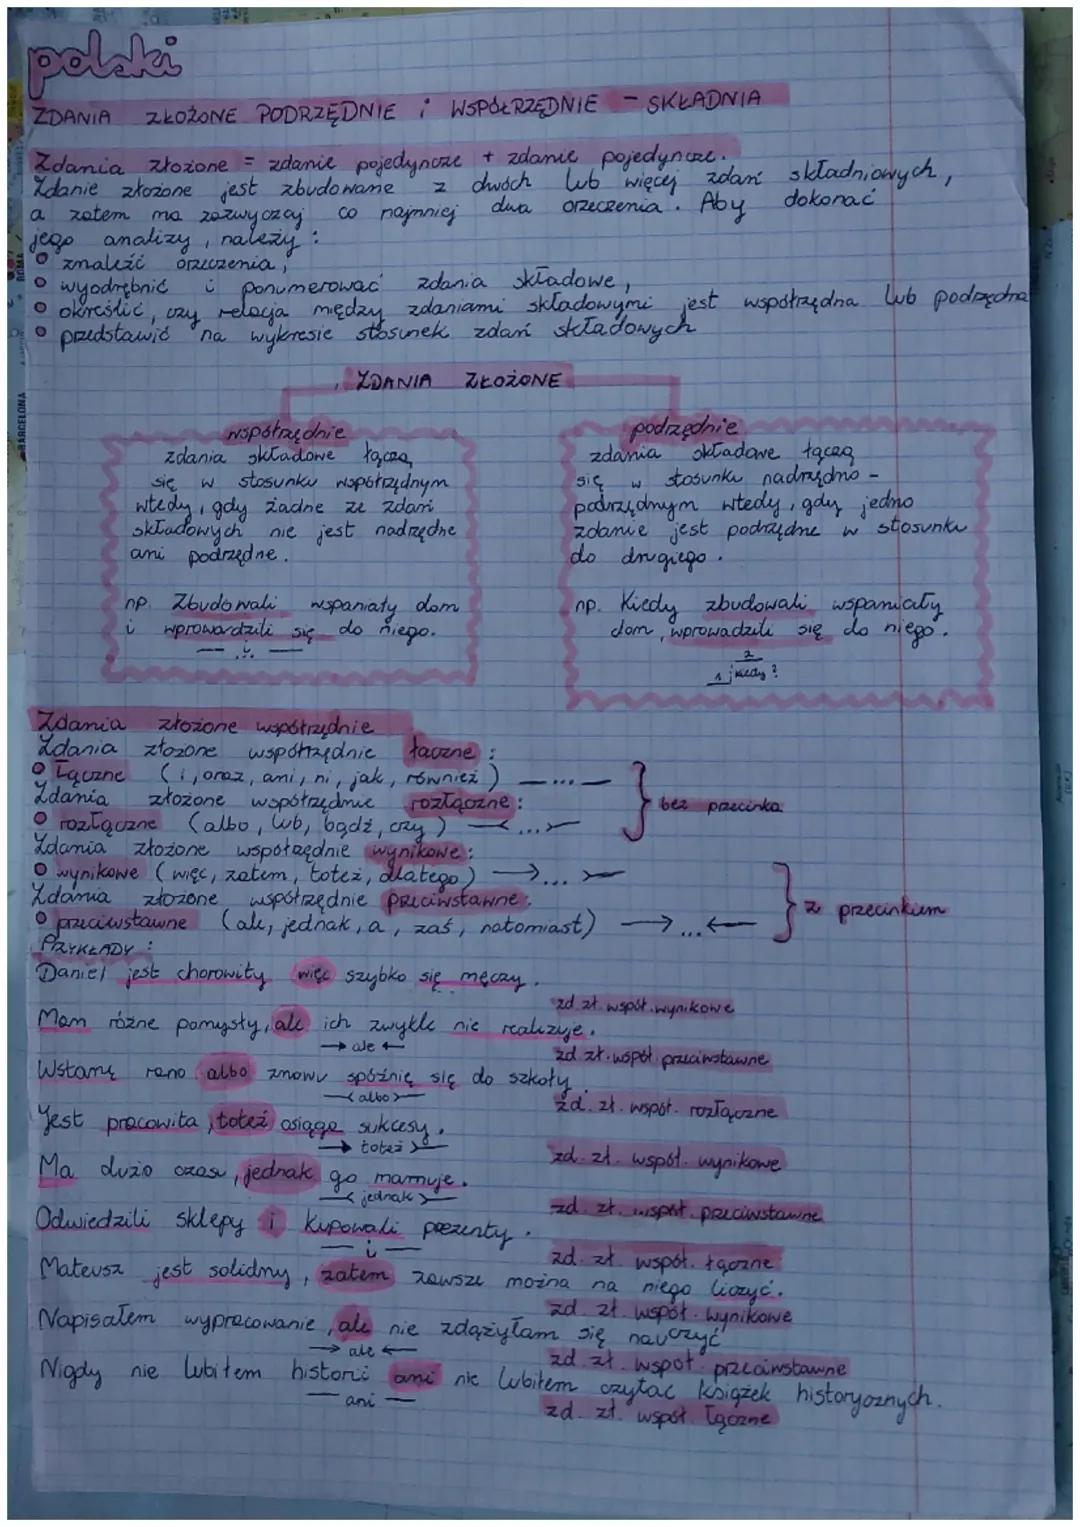 polski
ZDANIA ZŁOŻONE PODRZĘDNIE i WSPÓŁRZĘDNIE - SKŁADNIA
Zdania złożone = zdanie pojedyncze + zdanie pojedyncze.
Zdanie złożone jest zbudowane z dwóch lub więcej zdań składniowych,
a zatem ma zazwyczaj co najmniej dwa orzeczenia. Aby dokonać
jego analizy, należy:
o znaleźć orzeczenia,
o wyodrębnić i ponumerować zdania składowe,
o określić, czy relacja między zdaniami składowymi jest współrzędna lub podrzędna
o przedstawić na wykresie stosunek zdań składowych
ZDANIA ZŁOŻONE
współrzędnie
zdania składowe łączą
się w stosunku współrzędnym
wtedy, gdy żadne ze zdań
składowych nie jest nadrzędne
ani podrzędne.
np. Zbudowali wspaniały dom
i wprowadzili się do niego.
— i —
podrzędnie
zdania składowe łączą
się w stosunku nadrzędno -
podrzędnym wtedy, gdy jedno
zdanie jest podrzędne w stosunku
do drugiego.
np. Kiedy zbudowali wspaniały
dom, wprowadzili się do niego.
2
1 kiedy?
Zdania złożone współrzędnie
Zdania złożone współrzędnie łączne:
o Łączne (i, oraz, ani, ni, jak, również) —...—
Zdania złożone współrzędnie rozłączne:
o rozłączne (albo, lub, bądź, czy) —<...>—
bez przecinka
Zdania złożone współrzędnie wynikowe:
o wynikowe (więc, zatem, toteż, dlatego) —>... >—
Zdania złożone współrzędnie przeciwstawne:
o przeciwstawne (ale, jednak, a, zaś, natomiast) —>...<—
z przecinkiem
PRZYKŁADY:
Daniel jest chorowity więc szybko się męczy.
zd. zł. współ. wynikowe
Mam różne pomysły, ale ich zwykle nie realizuje.
—> ale <—
zd. zł. współ. przeciwstawne
Wstanę rano albo znowu spóźnię się do szkoły.
—< albo >—
zd. zł. współ. rozłączne
Jest pracowita, toteż osiąga sukcesy.
—> toteż >—
zd. zł. współ. wynikowe
Ma dużo czasu, jednak go marnuje.
—< jednak >—
zd. zł. współ. przeciwstawne
Odwiedzili sklepy i kupowali prezenty.
— i —
zd. zł. współ. łączne
Mateusz jest solidny, zatem zawsze można na niego liczyć.
zd. zł. współ. wynikowe
Napisałem wypracowanie, ale nie zdążyłam się nauczyć
—> ale <—
zd. zł. współ. przeciwstawne
Nigdy nie lubiłem historii ani nie lubiłem czytać książek historycznych.
— ani —
zd. zł. współ. łączne
BARCELONA
ROMA